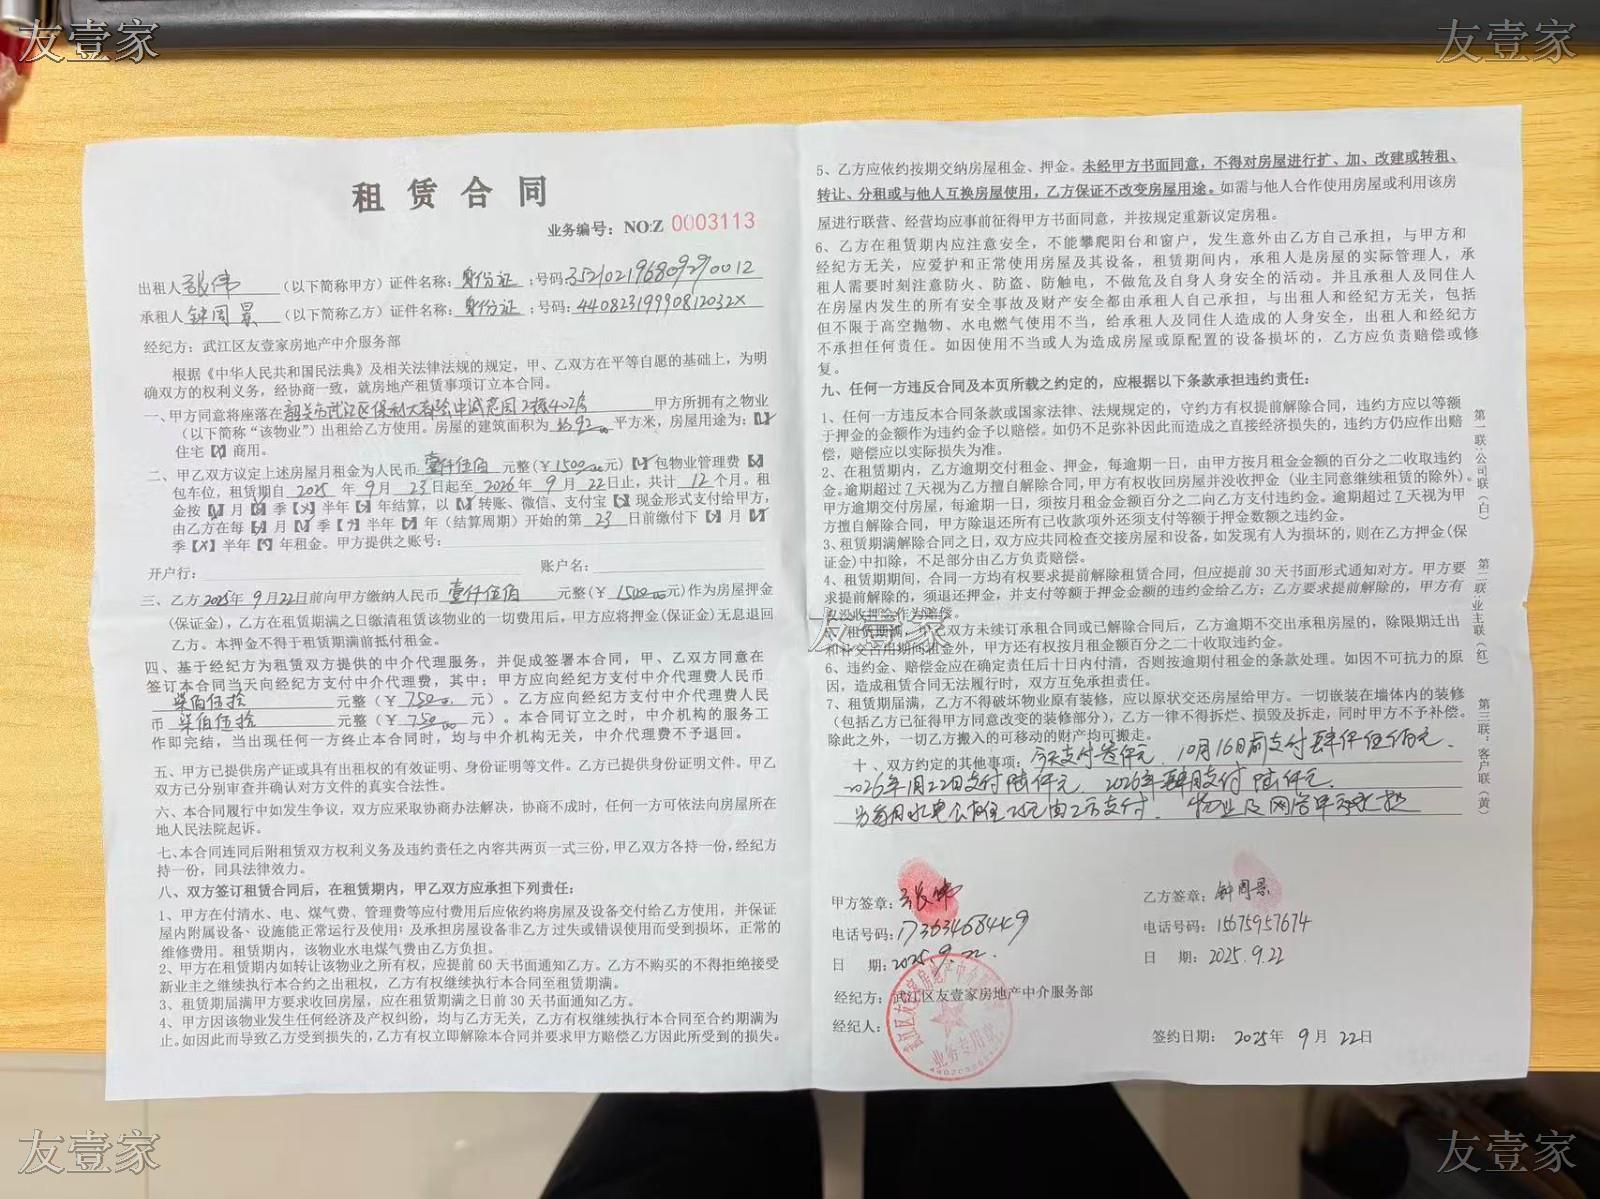 友壹家
友壹家
租赁合同
业务编号：NO:Z 0003113
出租人 张伟 （以下简称甲方）证件名称：身份证；号码：352102196809290012
承租人 钟周景 （以下简称乙方）证件名称：身份证；号码：44082319990812032X
经纪方：武江区友壹家房地产中介服务部
根据《中华人民共和国民法典》及相关法律法规的规定，甲、乙双方在平等自愿的基础上，为明
确双方的权利义务，经协商一致，就房地产租赁事项订立本合同。
一、甲方同意将座落在韶关市武江区保利大都会中诚花园2栋402房 甲方所拥有之物业
（以下简称“该物业”）出租给乙方使用。房屋的建筑面积为 平方米，房屋用途为：【】
住宅【】商用。
二、甲乙双方议定上述房屋月租金为人民币 壹仟伍佰 元整（￥1500.00元）【】包物业管理费【】
包车位，租赁期自 2025 年 9 月 23 日起至 2026 年 9 月 22 日止，共计 12 个月。租
金按【】月【】季【】半年【】年结算，以【】转账、微信、支付宝【】现金形式支付给甲方，
由乙方在每【】月【】季【】半年【】年（结算周期）开始的第 23 日前缴付下【】月【】
季【】半年【】年租金。甲方提供之账号：
开户行： 账户名：
三、乙方 2025年 9月22日前向甲方缴纳人民币 壹仟伍佰 元整（￥ 1500.00元）作为房屋押金
（保证金），乙方在租赁期满之日缴清租赁该物业的一切费用后，甲方应将押金(保证金)无息退回
乙方。本押金不得于租赁期满前抵付租金。
四、基于经纪方为租赁双方提供的中介代理服务，并促成签署本合同，甲、乙双方同意在
签订本合同当天向经纪方支付中介代理费，其中：甲方应向经纪方支付中介代理费人民币
柒佰伍拾 元整（￥ 750.00 元）。乙方应向经纪方支付中介代理费人民
币 柒佰伍拾 元整（￥ 750.00 元）。本合同订立之时，中介机构的服务工
作即完结，当出现任何一方终止本合同时，均与中介机构无关，中介代理费不予退回。
五、甲方已提供房产证或具有出租权的有效证明、身份证明等文件。乙方已提供身份证明文件。甲乙
双方已分别审查并确认对方文件的真实合法性。
六、本合同履行中如发生争议，双方应采取协商办法解决，协商不成时，任何一方可依法向房屋所在
地人民法院起诉。
七、本合同连同后附租赁双方权利义务及违约责任之内容共两页一式三份，甲乙双方各持一份，经纪方
持一份，同具法律效力。
八、双方签订租赁合同后，在租赁期内，甲乙双方应承担下列责任：
1、甲方在付清水、电、煤气费、管理费等应付费用后应依约将房屋及设备交付给乙方使用，并保证
屋内附属设备、设施能正常运行及使用；及承担房屋设备非乙方过失或错误使用而受到损坏，正常的
维修费用。租赁期内，该物业水电煤气费由乙方负担。
2、甲方在租赁期内如转让该物业之所有权，应提前60天书面通知乙方。乙方不购买的不得拒绝接受
新业主之继续执行本合约之出租权，乙方有权继续执行本合同至租赁期满。
3、租赁期届满甲方要求收回房屋，应在租赁期满之日前30天书面通知乙方。
4、甲方因该物业发生任何经济及产权纠纷，均与乙方无关，乙方有权继续执行本合同至合约期满为
止。如因此而导致乙方受到损失的，乙方有权立即解除本合同并要求甲方赔偿乙方因此所受到的损失。
5、乙方应依约按期交纳房屋租金、押金。未经甲方书面同意，不得对房屋进行扩、加、改建或转租、
转让、分租或与他人互换房屋使用，乙方保证不改变房屋用途。如需与他人合作使用房屋或利用该房
屋进行联营、经营均应事前征得甲方书面同意，并按规定重新议定房租。
6、乙方在租赁期内应注意安全，不能攀爬阳台和窗户，发生意外由乙方自己承担，与甲方和
经纪方无关，应爱护和正常使用房屋及其设备，租赁期间内，承租人是房屋的实际管理人，承
租人需要时刻注意防火、防盗、防触电，不做危及自身人身安全的活动。并且承租人及同住人
在房屋内发生的所有安全事故及财产安全都由承租人自己承担，与出租人和经纪方无关，包括
但不限于高空抛物、水电燃气使用不当，给承租人及同住人造成的人身安全，出租人和经纪方
不承担任何责任。如因使用不当或人为造成房屋或原配置的设备损坏的，乙方应负责赔偿或修
复。
九、任何一方违反合同及本页所载之约定的，应根据以下条款承担违约责任：
1、任何一方违反本合同条款或国家法律、法规规定的，守约方有权提前解除合同，违约方应以等额
于押金的金额作为违约金予以赔偿。如仍不足弥补因此而造成之直接经济损失的，违约方仍应作出赔
偿，赔偿应以实际损失为准。
2、在租赁期内，乙方逾期交付租金、押金，每逾期一日，由甲方按月租金金额的百分之二收取违约
金。逾期超过7天视为乙方擅自解除合同，甲方有权收回房屋并没收押金（业主同意继续租赁的除外）。
甲方逾期交付房屋，每逾期一日，须按月租金金额百分之二向乙方支付违约金。逾期超过7天视为甲
方擅自解除合同，甲方除退还所有已收款项外还须支付等额于押金数额之违约金。
3、租赁期满解除合同之日，双方应共同检查交接房屋和设备，如发现有人为损坏的，则在乙方押金(保
证金)中扣除，不足部分由乙方负责赔偿。
4、租赁期期间，合同一方均有权要求提前解除租赁合同，但应提前30天书面形式通知对方。甲方要
求提前解除的，须退还押金，并支付等额于押金金额的违约金给乙方；乙方要求提前解除的，甲方有
权没收押金作为赔偿。
友壹家
5、租赁期满，甲乙双方未续订承租合同或已解除合同后，乙方逾期不交出承租房屋的，除限期迁出
和补交占用期间租金外，甲方还有权按月租金额百分之二十收取违约金。
6、违约金、赔偿金应在确定责任后十日内付清，否则按逾期付租金的条款处理。如因不可抗力的原
因，造成租赁合同无法履行时，双方互免承担责任。
7、租赁期届满，乙方不得破坏物业原有装修，应以原状交还房屋给甲方。一切嵌装在墙体内的装修
（包括乙方已征得甲方同意改变的装修部分），乙方一律不得拆烂、损毁及拆走，同时甲方不予补偿。
除此之外，一切乙方搬入的可移动的财产均可搬走。
十、双方约定的其他事项：今天支付叁仟元，10月16日前支付肆仟伍佰元，
2026年1月22日支付陆仟元，2026年 月支付陆仟元。
另每月水电公摊 元由乙方支付， 物业及网络
第一联：公司联（白） 第二联：业主联（红） 第三联：客户联（黄）
甲方签章：张伟
电话号码：17363468449
日 期：2025.9.22.
乙方签章：钟周景
电话号码：15675957674
日 期：2025.9.22
经纪方：武江区友壹家房地产中介服务部
经纪人：
武江区友壹家房地产中介服务部
业务专用章
签约日期： 2025年 9月 22日
友壹家
友壹家